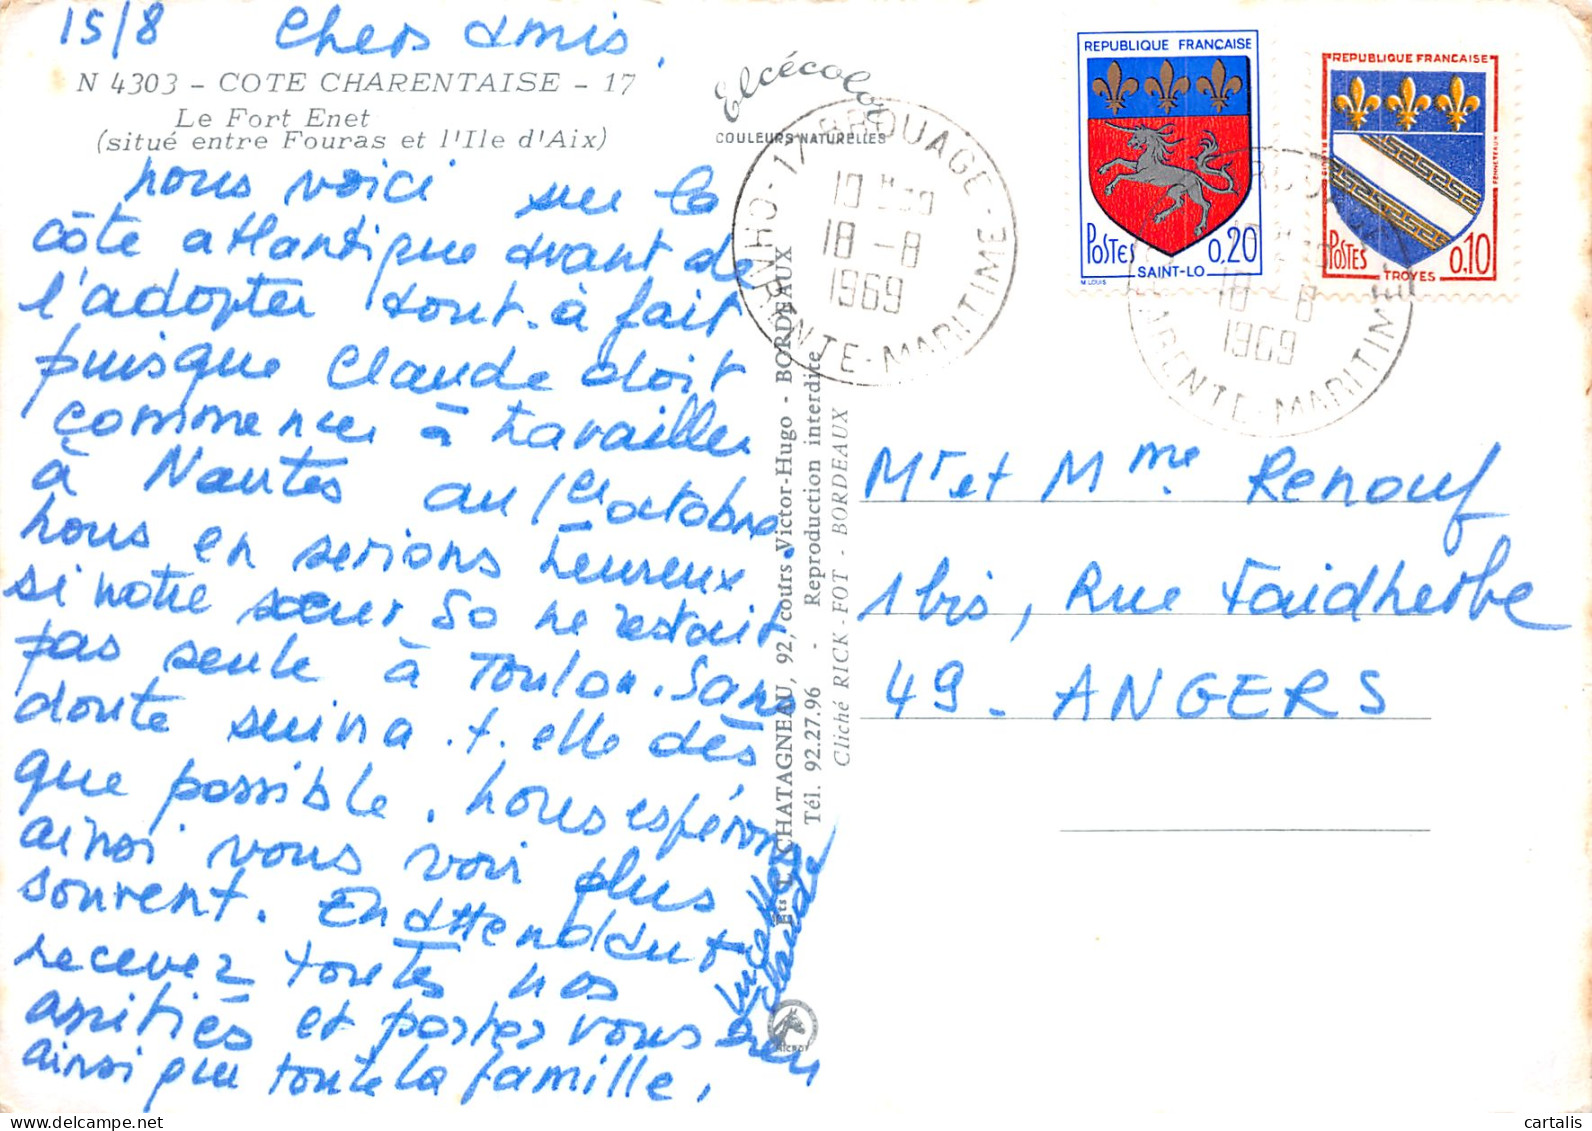 15/8 Chers amis,
N 4303 - COTE CHARENTAISE - 17
Le Fort Enet
(situé entre Fouras et l'Ile d'Aix)
nous voici sur la
côte atlantique avant de
l'adopter tout à fait
puisque Claude doit
commencer à travailler
à Nantes au 1er octobre.
nous en serions heureux
si notre soeur So ne restait
pas seule à Toulon. Sans
doute suivra-t-elle dès
que possible. nous espérons
ainsi vous voir plus
souvent. En attendant
recevez toutes nos
amitiés et portez vous bien
ainsi que toute la famille.
Claude
Elcécolor
COULEURS NATURELLES
Ets L. CHATAGNEAU, 92, cours Victor-Hugo - BORDEAUX
Tél. 92.27.96 - Reproduction interdite
Cliché RICK-FOT - BORDEAUX
17 BROUAGE - CHARENTE-MARITIME
18 -8
1969
REPUBLIQUE FRANÇAISE
POSTES 0,20
SAINT-LO
M LOUIS
REPUBLIQUE FRANCAISE
POSTES 0,10
TROYES
18 -8
1969
CHARENTE-MARITIME
Mr et Mme Renouf
1 bis, Rue Faidherbe
49 - ANGERS
delcampe.net
cartalis